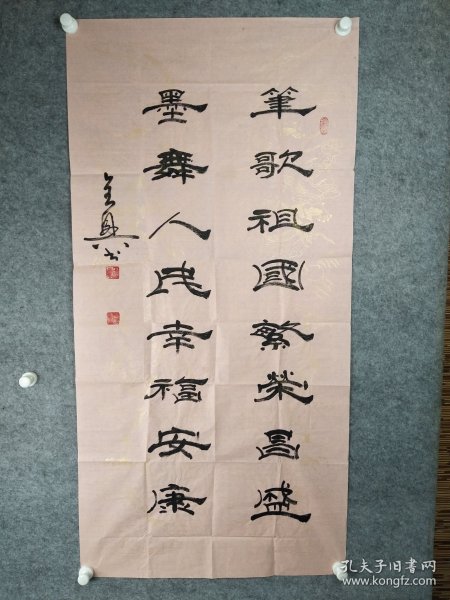 筆歌祖國繁榮昌盛
墨舞人民幸福安康
孔夫子旧书网
www.kongfz.com